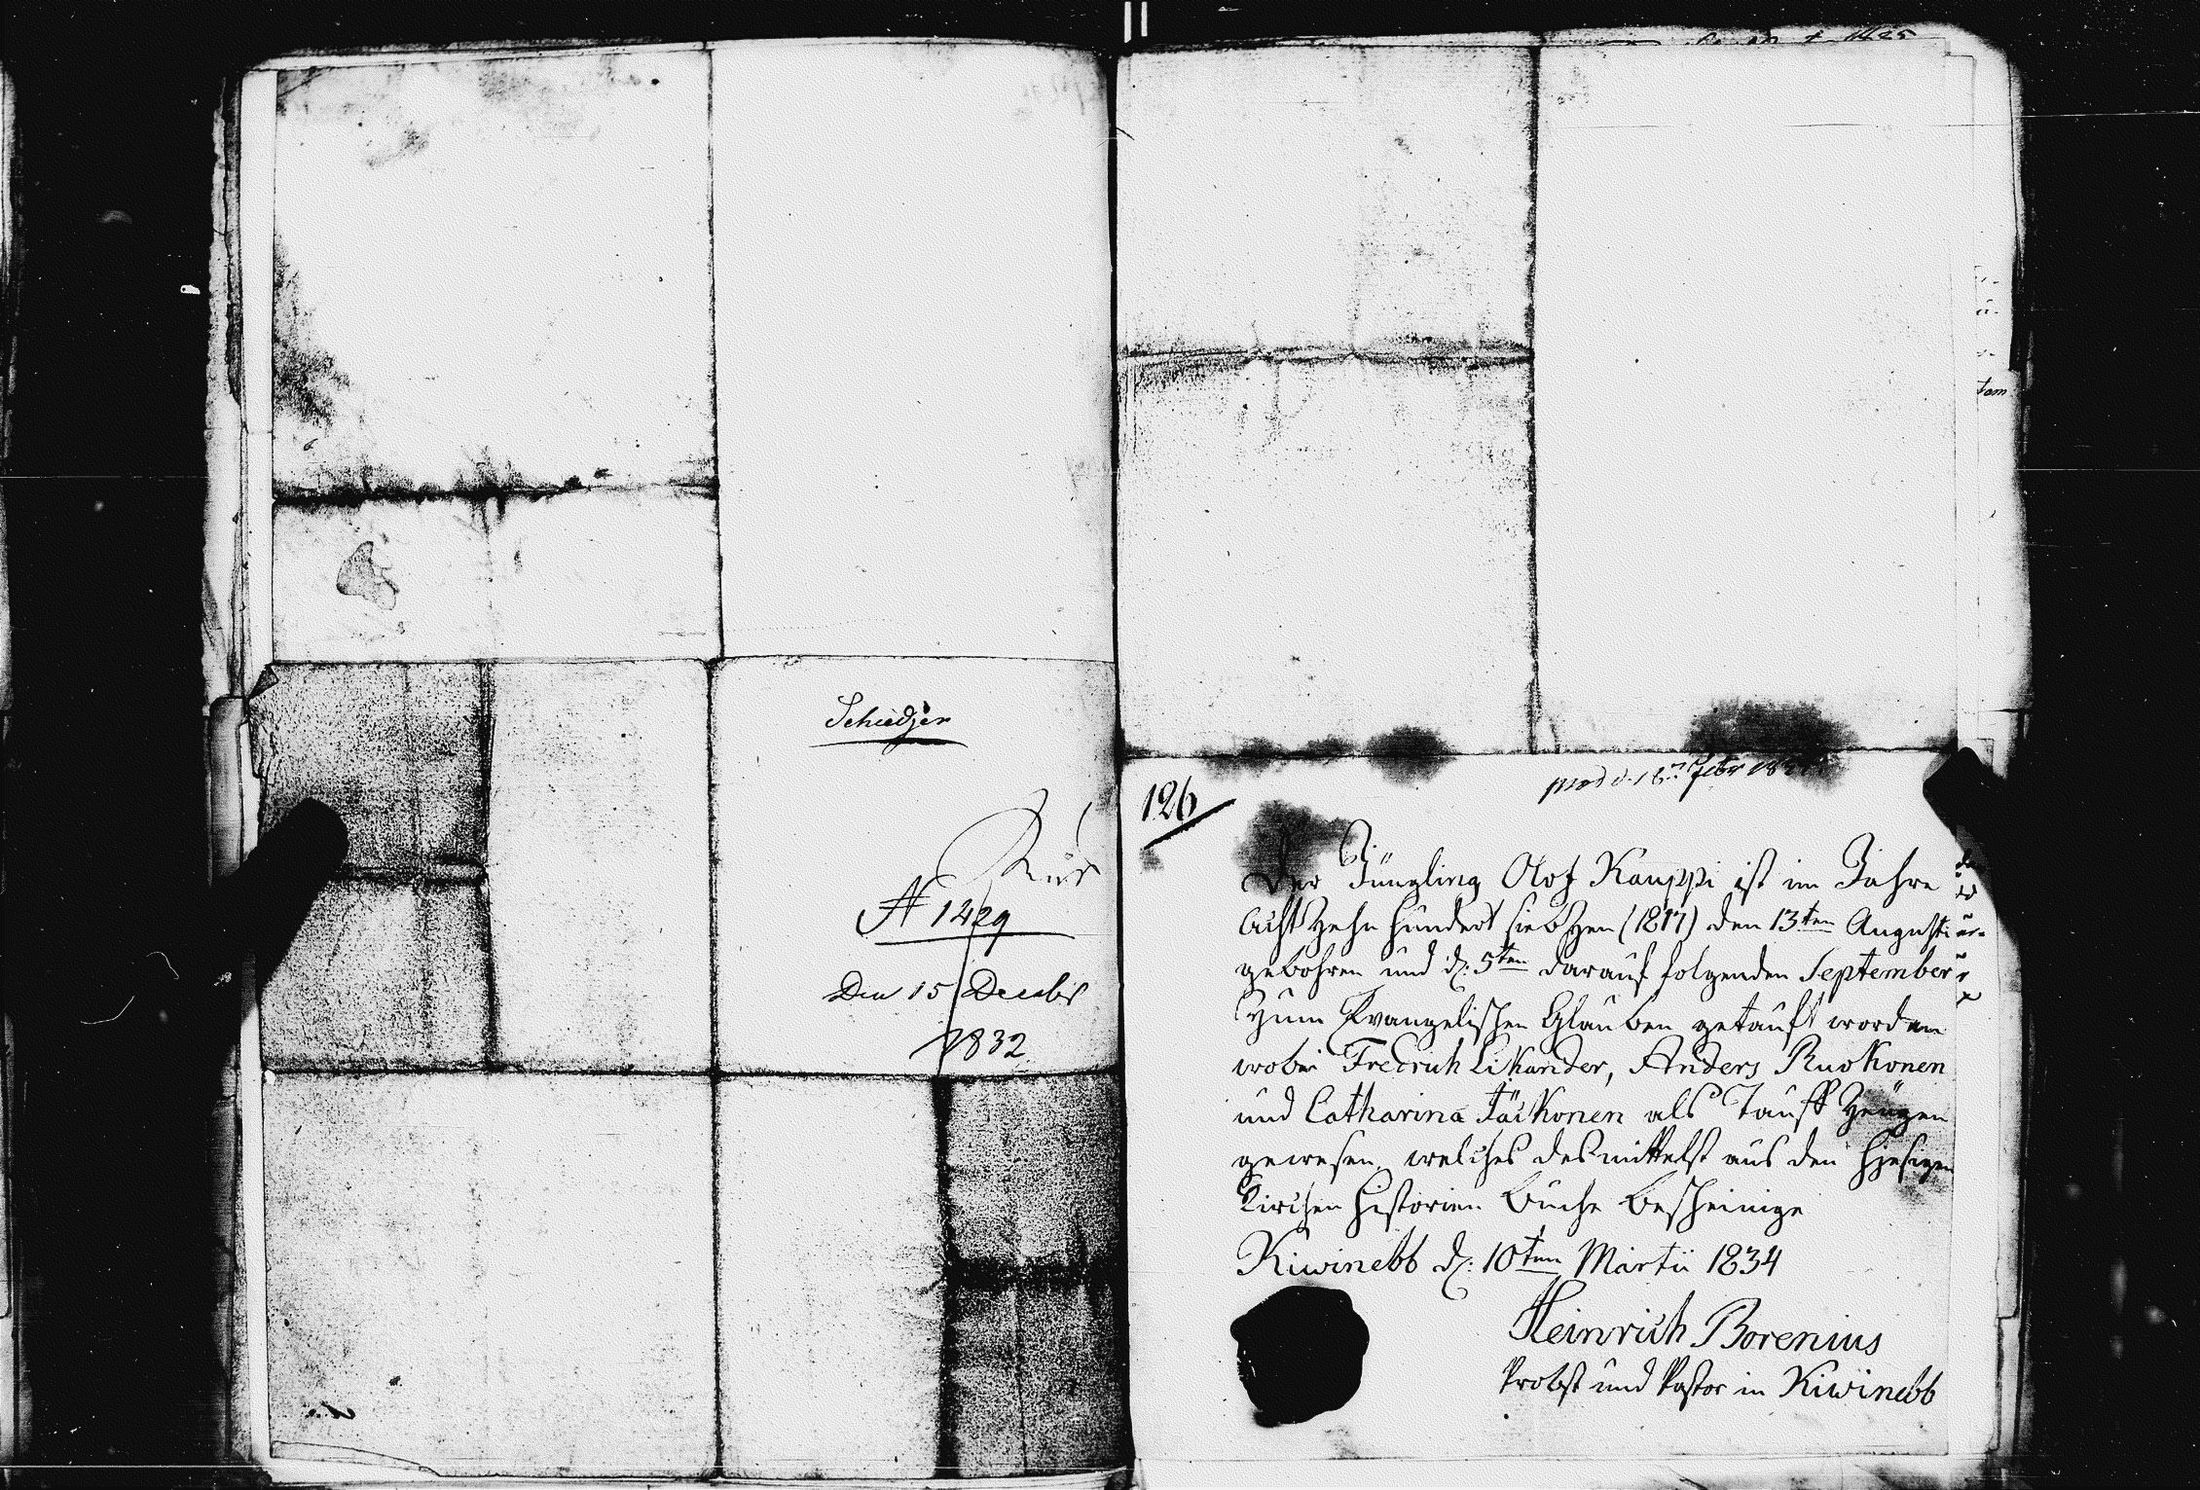 Schudjer
Kür
N 1429
Den 15 Decebr
1832
126
prod d. 16ten Febr
Der Jüngling Olof Kauppi ist im Jahre
Acht Zehn hundert siebZen (1817) den 13ten Augusti
gebohren und d: 5ten darauf folgenden September
Zum Evangelischen Glauben getauft worden
wobei Fredrich Likander, Anders Ruokonen
und Catharina Jäskonen als Tauff Zeügen
gewesen, welches desmittelst aus den hiesigen
Kirchen Historien Buche bescheinige
Kiwinebb d: 10ten Martii 1834
Heinrich Borenius
Probst und Pastor in Kiwinebb